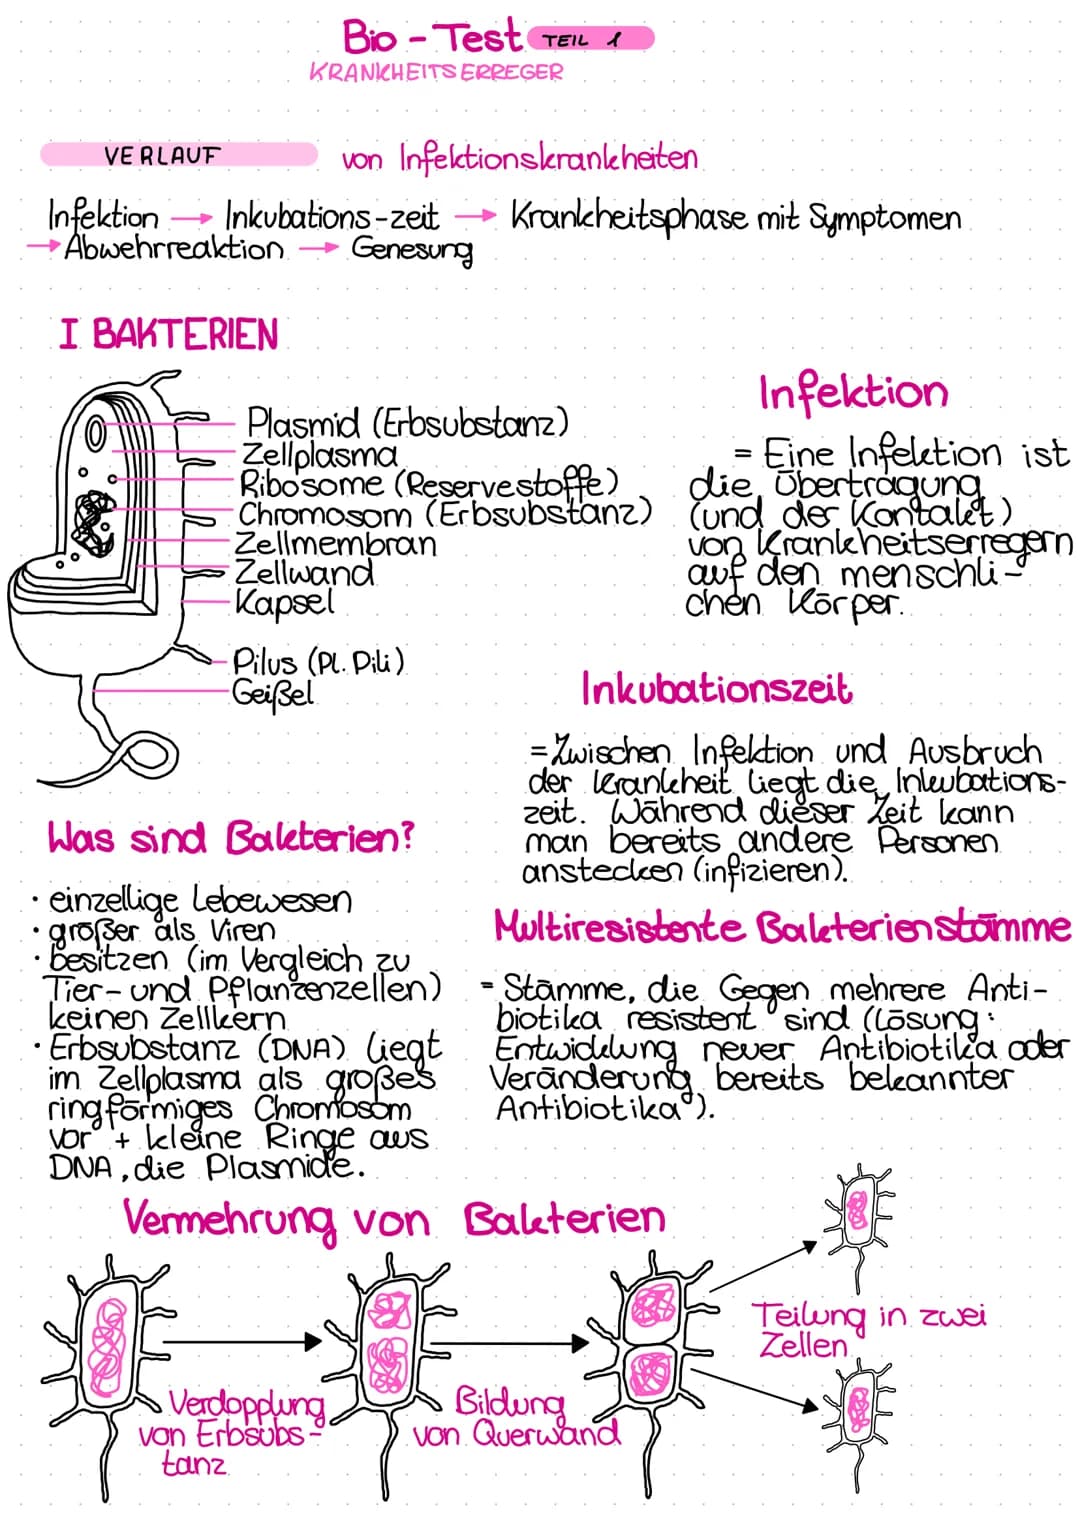 Bio - Test TEIL 1
KRANKHEITSERREGER
VERLAUF von Infektionskrankheiten
Infektion → Inkubations-zeit → Krankheitsphase mit Symptomen
→ Abwehrreaktion → Genesung
I BAKTERIEN
Plasmid (Erbsubstanz)
Zellplasma
Ribosome (Reservestoffe)
Chromosom (Erbsubstanz)
Zellmembran
Zellwand
Kapsel
Pilus (Pl. Pili)
Geißel
Infektion
= Eine Infektion ist
die Übertragung
(und der Kontakt)
von Krankheitserregern
auf den menschli-
chen Körper.
Inkubationszeit
= Zwischen Infektion und Ausbruch
der Krankheit liegt die Inkubations-
zeit. Während dieser Zeit kann
man bereits andere Personen
anstecken (infizieren).
Was sind Bakterien?
· einzellige Lebewesen
· größer als Viren
· besitzen (im Vergleich zu
Tier- und Pflanzenzellen)
keinen Zellkern
· Erbsubstanz (DNA) liegt
im Zellplasma als großes
ringförmiges Chromosom
vor + kleine Ringe aus
DNA, die Plasmide.
Multiresistente Bakterienstämme
= Stämme, die Gegen mehrere Anti-
biotika resistent sind (Lösung:
Entwicklung neuer Antibiotika oder
Veränderung bereits bekannter
Antibiotika).
Vermehrung von Bakterien
Verdopplung
von Erbsubs-
tanz
Bildung
von Querwand
Teilung in zwei
Zellen